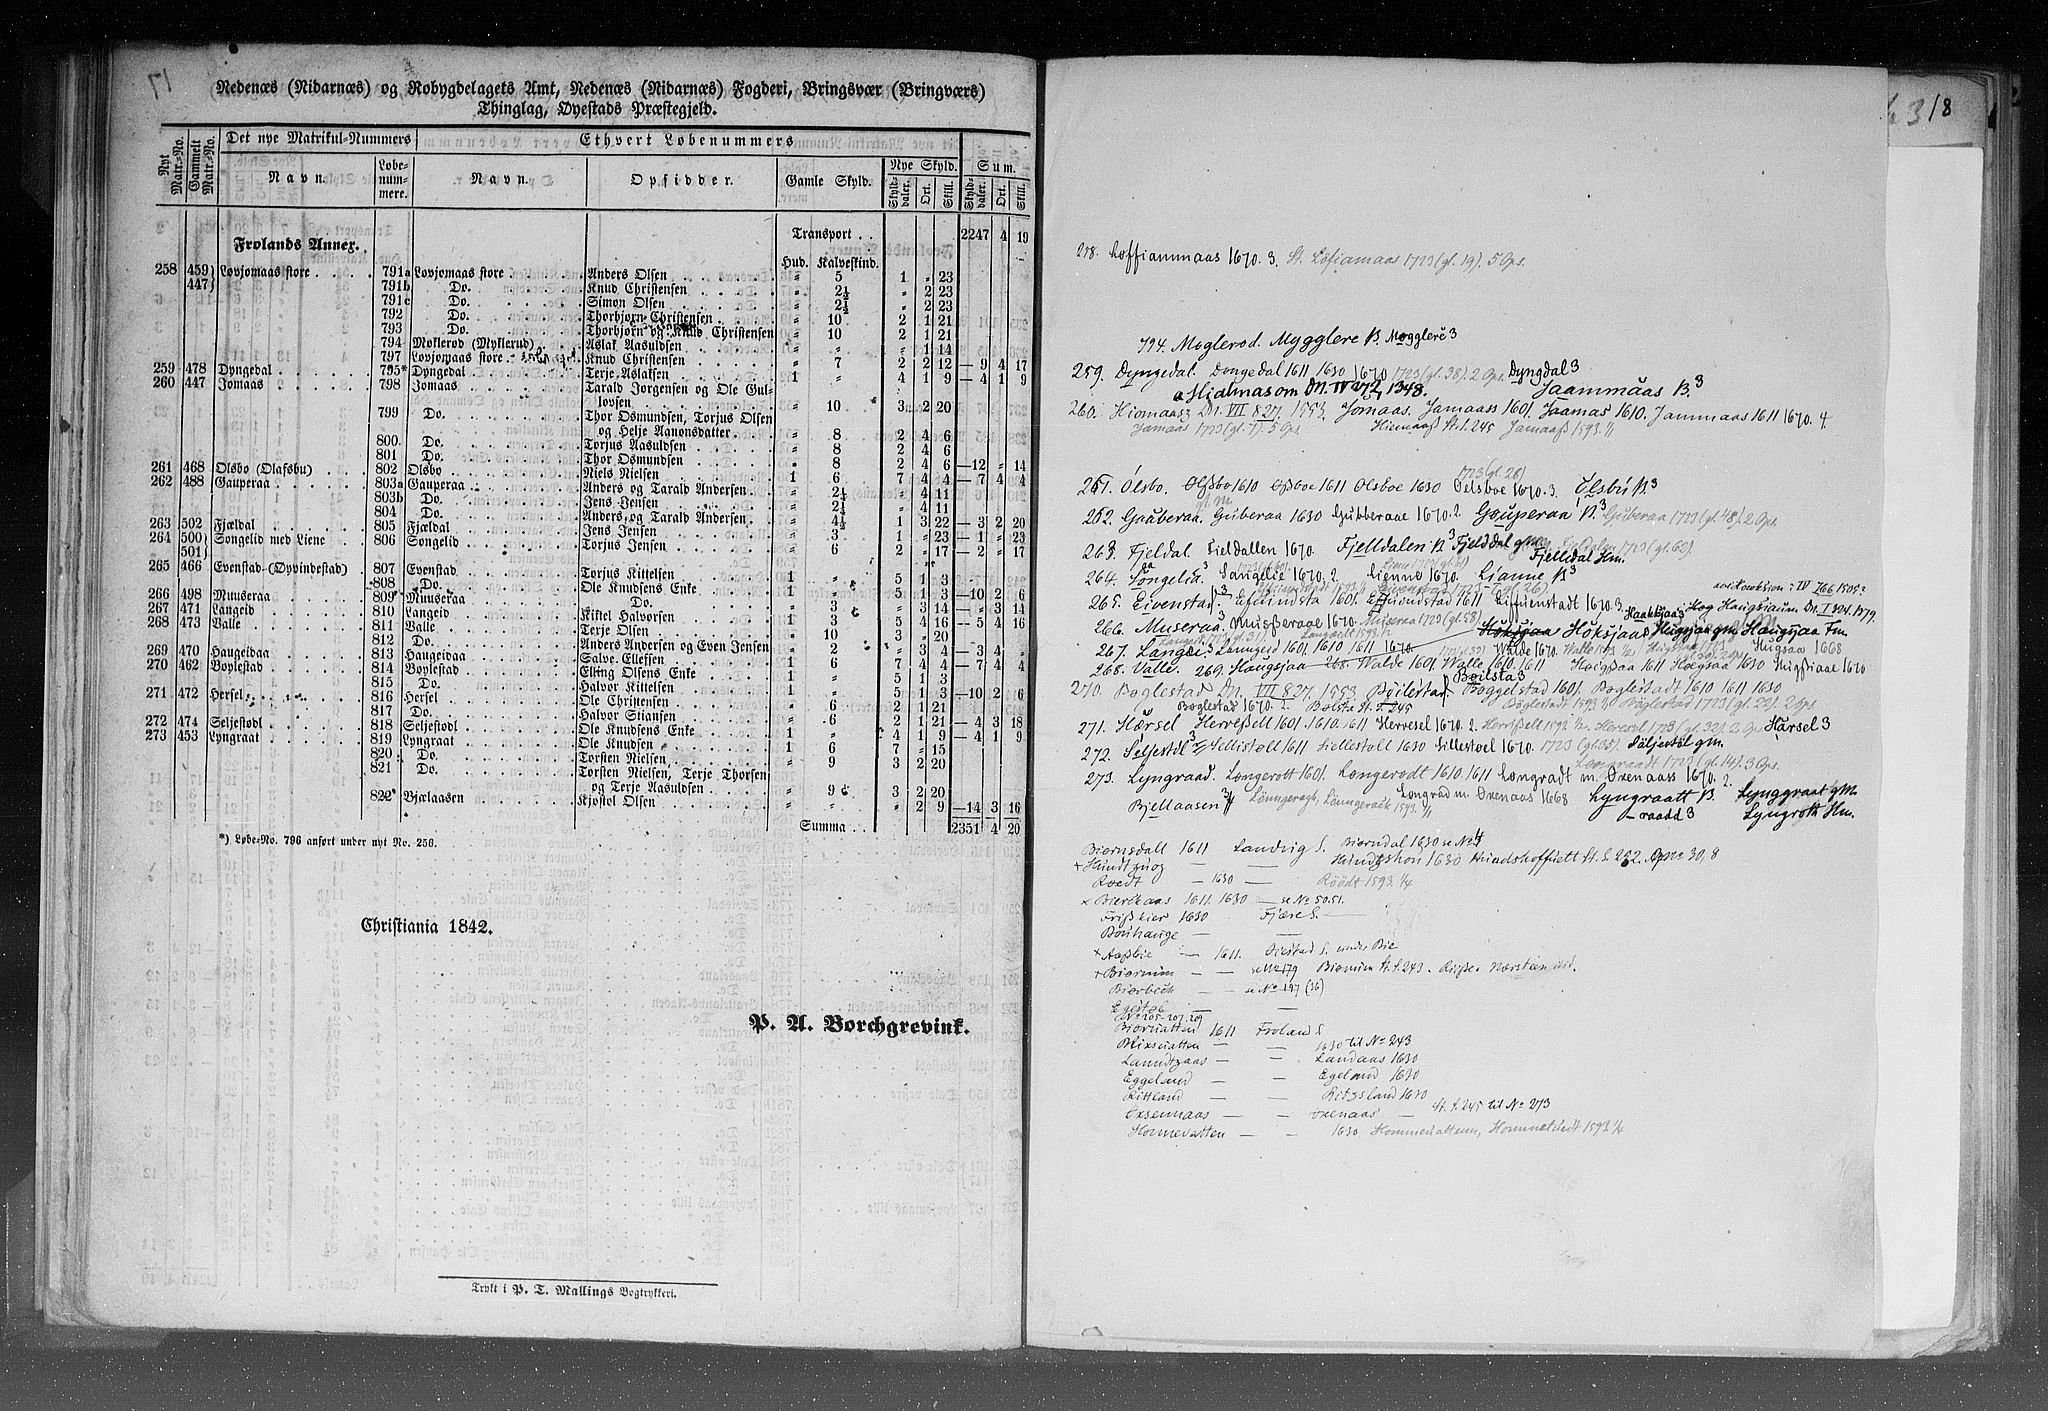 17
Nedenæs (Nidarnæs) og Robygdelagets Amt, Nedenæs (Nidarnæs) Fogderi, Bringsvær (Bringværs)
Thinglag, Øyestads Præstegjeld.
Nyt Matr.-No. Gammelt Matr.-No. Det nye Matrikul-Nummers Ethvert Løbenummers
Navn. Løbe-nummere. Navn. Opsidder. Gamle Skyld. Nye Skyld. Sum.
Skylddaler. Ort. Skill. Skylddaler. Ort. Skill.
Frolands Annex. Transport . . 2247 4 19
Hud. Kalveskind.
258 459 Lovjomaas store 791a Lovjomaas store Anders Olsen " 5 1 " 23
447 791b Do. Knud Christensen " 2½ " 2 23
791c Do. Simon Olsen " 2½ " 2 23
792 Do. Thorbjørn Christensen " 10 2 1 21
793 Do. Thorbjørn og Knud Christensen " 10 2 1 21
794 Møklerød (Myklerud) Aslak Aasuldsen " " " 1 14
797 Lovjomaas store Knud Christensen " 7 2 2 12 — 9 4 17
259 478 Dyngedal 795* Dyngedal Terje Aslaksen 1 " 4 1 9 — 4 1 9
260 447 Jomaas 798 Jomaas Tarald Jørgensen og Ole Gullovsen " 10 3 2 20
799 Do. Thor Osmundsen, Torjus Olsen
og Helje Aanonsdatter " 8 2 4 6
800 Do. Torjus Aasuldsen " 8 2 4 6
801 Do. Thor Osmundsen " 8 2 4 6 — 12 " 14
261 468 Olsbo (Olafsbu) 802 Olsbo Niels Nielsen 1 6 7 4 4 — 7 4 4
262 488 Gauperaa 803a Gauperaa Anders og Tarald Andersen " 2½ " 4 11
803b Do. Jens Jensen " 2½ " 4 11
804 Do. Anders og Tarald Andersen " 4½ 1 3 22 — 3 2 20
263 502 Fjældal 805 Fjældal Jens Jensen " 3 1 " 23 — 1 " 23
264 500 Songelid med Liene 806 Songelid Torjus Jensen " 6 2 " 17 — 2 " 17
501
265 466 Evenstad (Øyvindestad) 807 Evenstad Torjus Kittelsen 1 " 5 1 3
808 Do. Ole Knudsens Enke 1 " 5 1 3 — 10 2 6
266 498 Muuseraa 809 Muuseraa Do. " 3 " 3 14 — " 3 14
267 471 Langeid 810 Langeid Kittel Halvorsen 1 3 5 4 16 — 5 4 16
268 473 Valle 811 Valle Terje Olsen " 10 3 " 20
812 Do. Anders Andersen og Even Jensen " 2 " 3 4 — 3 4 "
269 470 Haugeidaa 813 Haugeidaa Salve Ellefsen 1 6 7 4 4 — 7 4 4
270 462 Bøylestad 814 Bøylestad Elling Olsens Enke 1 " 5 1 3
815 Do. Halvor Kittelsen 1 " 5 1 3 — 10 2 6
271 472 Hersel 816 Hersel Ole Christensen " 6 2 1 21
817 Do. Halvor Stiansen " 6 2 1 21 — 4 3 18
272 474 Seljestødl 818 Seljestødl Ole Knudsens Enke 1 " 4 1 9 — 4 1 9
273 453 Lyngraat 819 Lyngraat Ole Knudsen 1 6 7 " 15
820 Do. Torsten Nielsen " 9 3 2 20
821 Do. Torsten Nielsen, Terje Thorsen
og Terje Aasuldsen " 9 3 2 20
822* Bjælaasen Kjøstol Olsen " " " 2 9 — 14 3 16
Summa . . 2351 4 20
*) Løbe-No. 796 anført under nyt No. 256.
Christiania 1842.
P. A. Borchgrevink.
Trykt i P. T. Mallings Bogtrykkeri.
18
258. Loffiammaas 1670. 3. St. Løfiamaas 1723 (gl. 19). 5 Ops.
794. Moglerod. Mygglere B. Mogglere 3
259. Dyngedal. Dongedal 1611 1630 1670 1723 (gl. 38). 2 Ops. Dyngdal 3
a Hiolmasom DN. IV 272, 1348. Jaammaas B. 3
260. Hiomaas DN. VIII 827. 1553. Jomaas. Jamaass 1601. Jaamas 1610. Jammaas 1611 1670. 4
Jamaas 1723 (gl. 7). 5 Ops Hiemaaß St. S. 245 Jamaaß 1593. 1/1
1723 (gl. 28)
261. Olsbo. Olßbo 1610 Oßboe 1611 Olsboe 1630 Oelsboe 1670. 3. Olsbu B. 3
262. Gauberaa. Guberaa 1630 Gubberaae 1670. 2 Gouperaa B. 3 Guberaa 1723 (gl. 48). 2 Ops.
263. Fjeldal. Fieldallen 1670. Fjelldalen B 3 Fjelddal gM. 1723 (gl. 62).
Fjelldal Hm.
264. Songelid 3 Sangelie 1670. 2. Lienne 1670. Lianne B 3
265. Eivenstad. 3 Efuindsta 1601. Efuindstad 1611 Eifuenstadt 1670. 3.
266. Museraa 3 Mußeraae 1670 Museraa 1723 (gl. 58)
267. Langei 3 Lanngeid 1601 1610 1611 1670
268. Valle. 269. Haugsjaa Walde 1601. Walle 1610. 1611 Haigßaa 1611 Høegsaa 1630 Høigßiaae 1670
Boilsta 3
270. Boglestad DN. VIII 827. 1553. Böilestad Boggelstad 1601. Boglestadt 1610 1611 1630
Boglestadt 1670. 2. Bolsta St. S. 245 Böglestadt 1593 1/1 Böglestad 1723 (gl. 22). 2 Ops
271. Hærsel Herreßell 1601. 1610. 1611 Herresel 1670. 2 Herrißell 1593 1/2 Heresel 1723 (gl. 32). 2 Ops Hársel 3
272. Seljestöl 3 Sellistøll 1611 Siellestoll 1630 Sillestoel 1670. 1723 (gl. 35) Söljestöl gM.
Longraadt 1723 (gl. 14). 3 Ops.
273. Lyngraad. Longerott 1601. Longerodt 1610. 1611 Longradt m. Oxenaass 1670. 2.
Bjellaasen 3 Lönngeragh, Lönngeraick 1593. 1/1 Longrad m. Oxenaas 1668 Lyngraatt B. Lynggraat gM.
—raadd 3 Lyngroth Hm.
Biørnsdall 1611 Landvig S. Biørndal 1630 se No 4
× Hundtzuog — — Hundtzhon 1630 Hundshoffuett St. S. 252.
Roedt — 1630 — Röödt 1593. 1/4
× Bierekaas 1611. 1630 — se No 50. 51.
Frißkier 1630 Fjære S.
Bouhauge — —
× Aaßbie — 1611. Øiestad S. under Bie
× Biørnum — — se No 179 Biønum St. S. 243.
Biørbech — — se No 197 (36)
Egestøl — —
No 205. 207. 209
Biørnatten 1611 Froland S
— — 1630 til No 243
Lanndtzaas — — Landaas 1630
Eggeland — — Egeland 1630
Rittland — — Ritzland 1630
Oxsennaas — — Oxenaas — St. S. 245 til No 273
Hommevatten — — 1630. Hommeuattenn, Hommetuedt 1593. 1/4